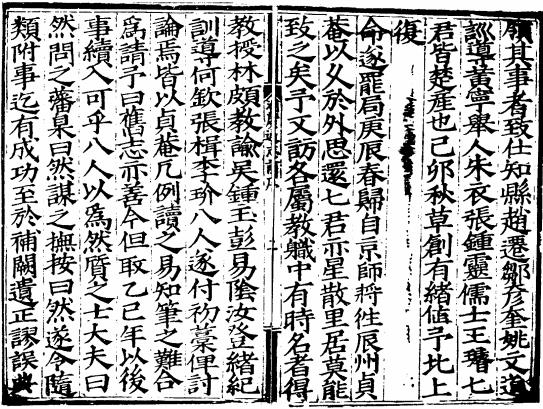 領其事者致仕知縣趙遷鄒彥奎姚文
訓導黃寧舉人朱衣張鍾靈儒士王璿七
君皆楚產也己卯秋草創有緒値予北上
復
命遂罷局庚辰春歸自京師將徃辰州貞
菴以久於外思還七君亦星散里居莫能
致之矣予文訪各屬教職中有時名者得
教授林頗教諭吳鍾玉彭易陰汝登緒紀
訓導何欽張楫李玠八人遂付初藁俾討
論焉皆以貞菴凡例讀之易知筆之難合
爲請予曰舊志亦善今但取乙巳年以後
事續入可乎八人以爲然質之士大夫曰
然問之藩臬曰然謀之撫按曰然遂令隨
類附事迄有成功至於補闕遺正謬誤典